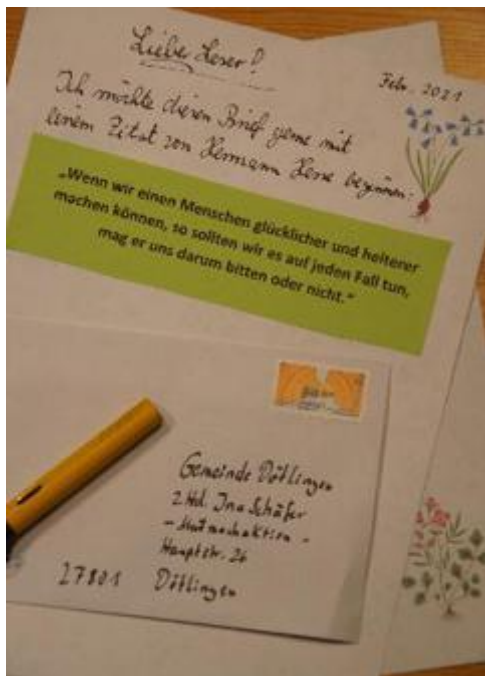 Lieber Leser!
Febr. 2021
Ich möchte diesen Brief gerne mit
einem Zitat von Hermann Hesse beginnen:
„Wenn wir einen Menschen glücklicher und heiterer
machen können, so sollten wir es auf jeden Fall tun,
mag er uns darum bitten oder nicht.“
Gemeinde Dötlingen
z.Hd. Ina Schäfer
- Mutmachaktion -
Hauptstr. 26
27801 Dötlingen